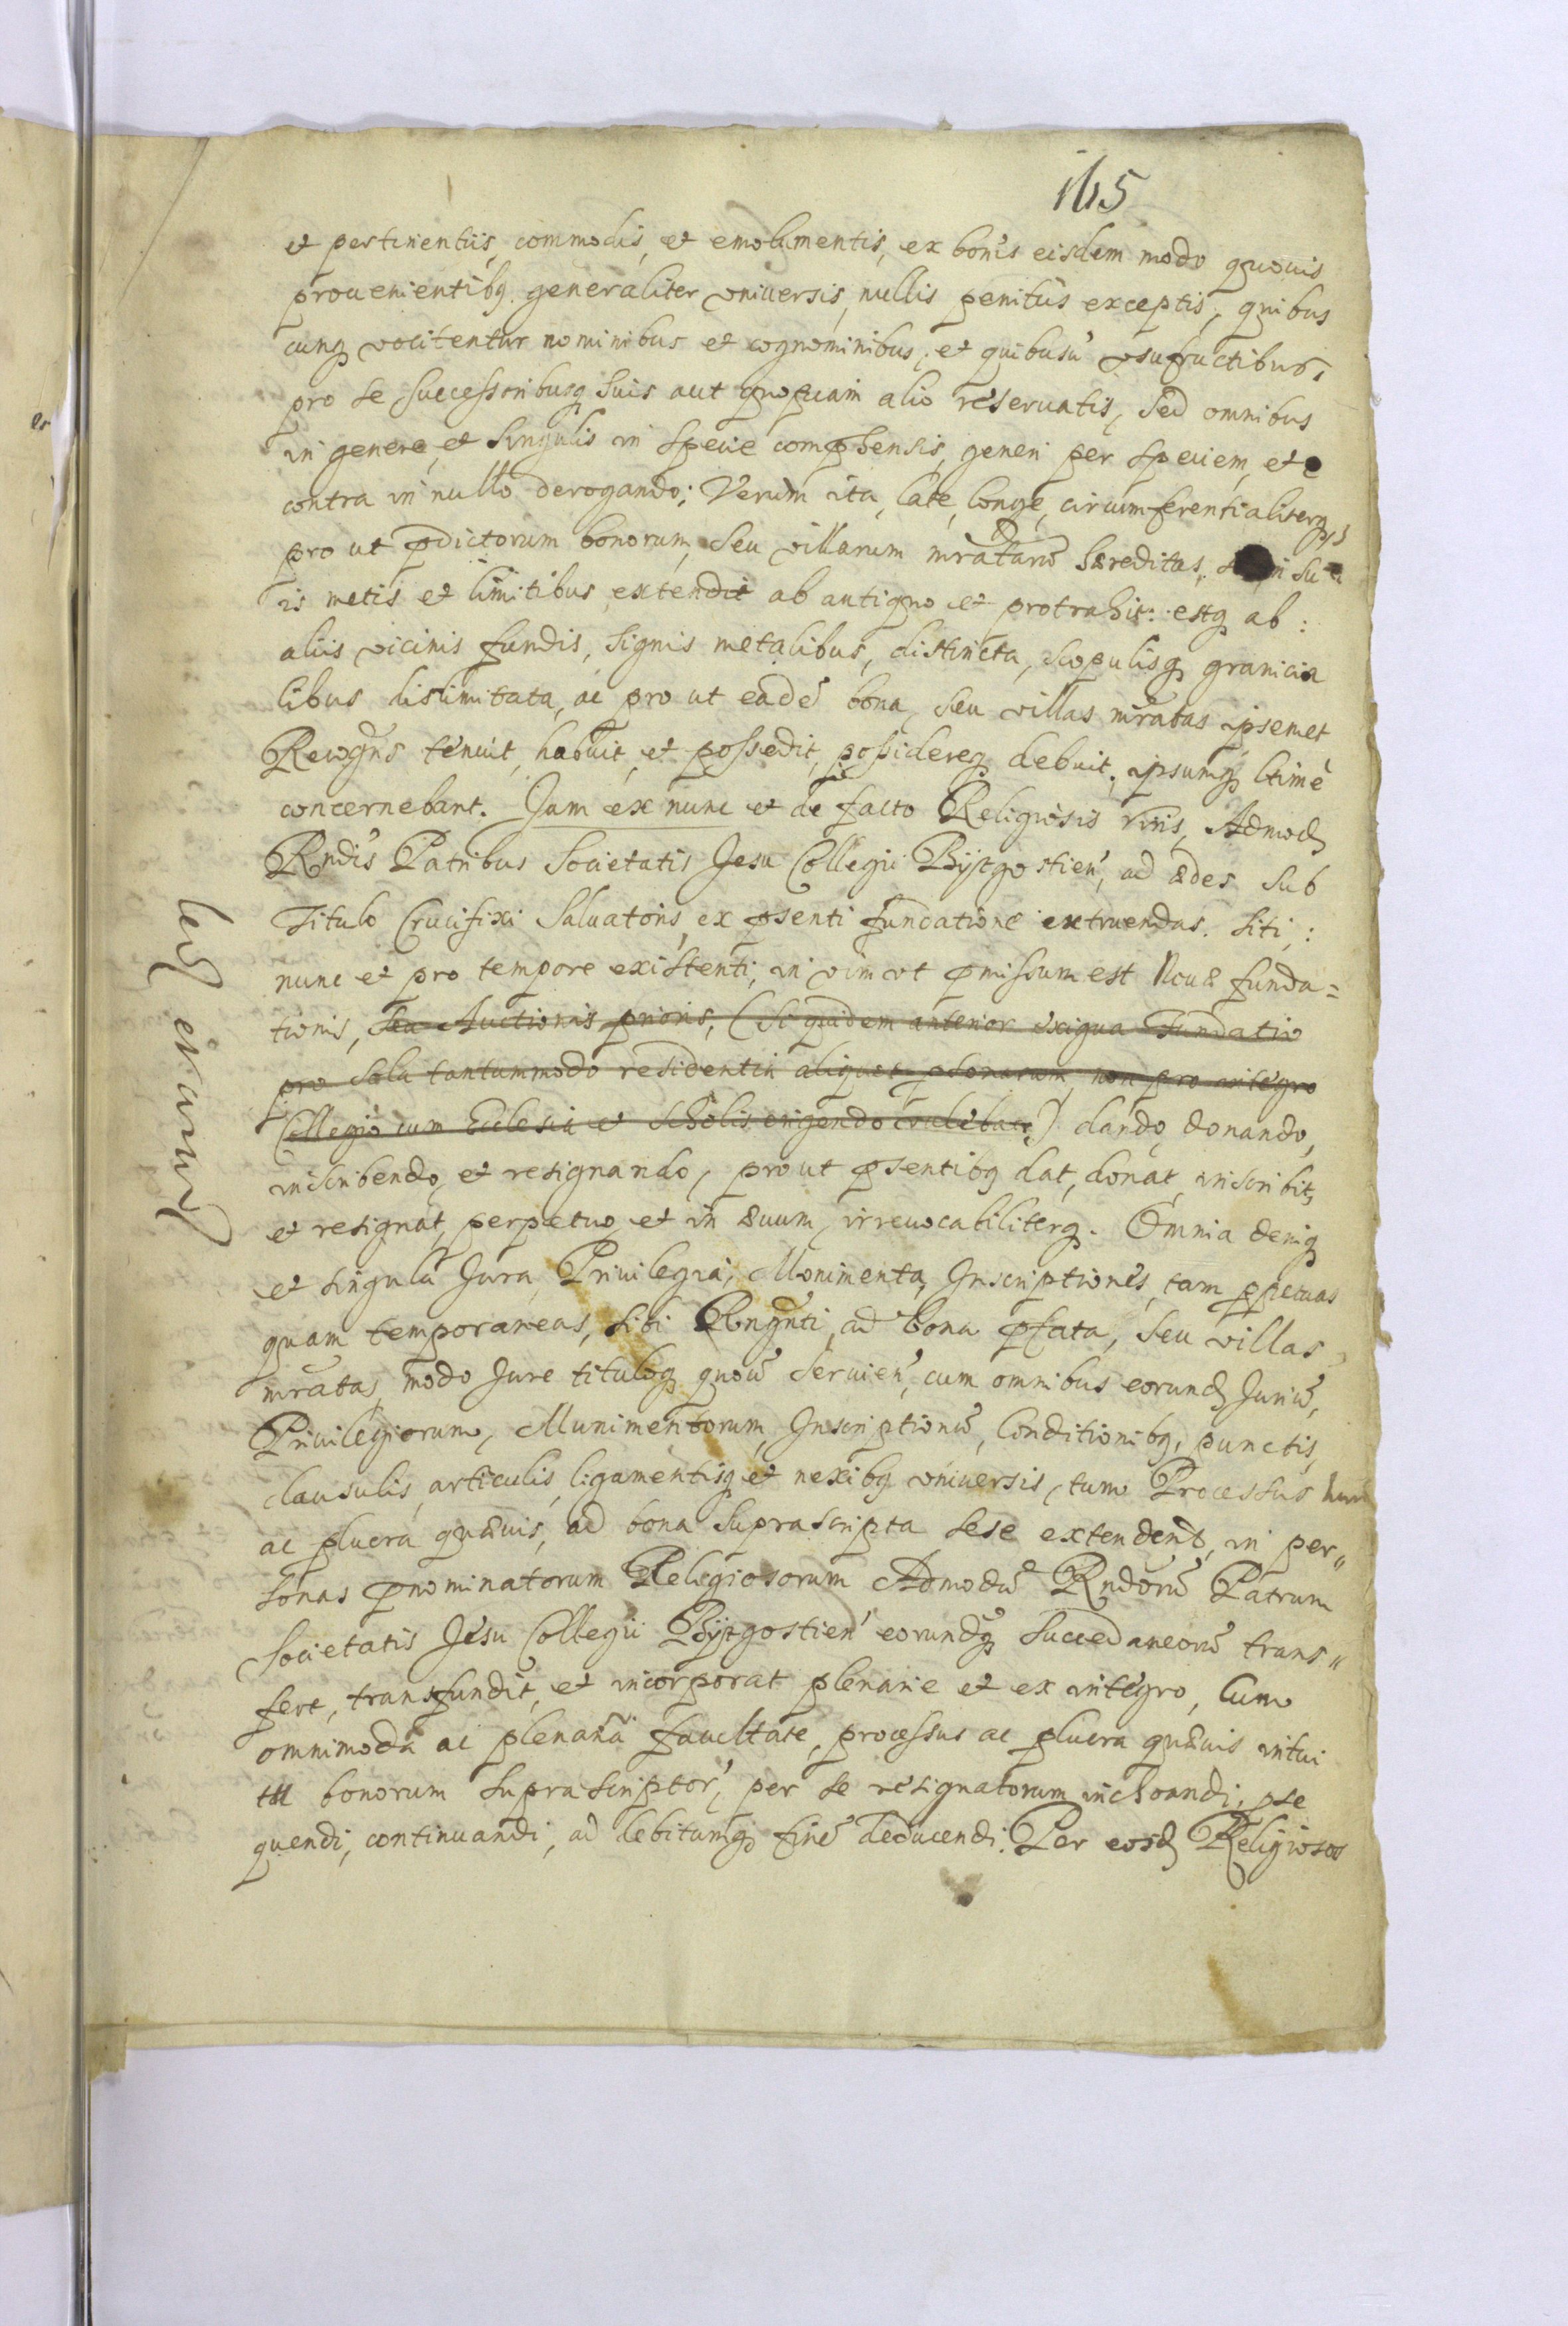 165
et pertinentijs, commodis, et emolumentis, ex bonis eisdem modo quouis
prouenientibq generaliter vniuersis, nullis penitùs exceptis, quibus
cunq vocitentur nominibus et cognominibus, et quibusũ vsufructibus,
pro se Successoribusq suis aut quopiam alio reseruatis, sed omnibus
in genere, et singulis in specie comp̃hensis, generi per speciem, et e
contra in nullo derogando; Verum ita, latè, longè, circumferentialiterq
pro ut p̃dictorum bonorum, seu villarum mratarũ hæreditas, in su
is metis et limitibus extendit ab antiquo et protrahit: estq ab:
alijs vicinis fundis, signis metalibus, distincta, scopulisq granicia
libus dislimitata, ac pro ut eadẽ bona, seu villas mratas ipsemet
Recogñs tenuit, habuit, et possedit, possidereq debuit, ipsumq ltimè
concernebant. Jam ex nunc et de facto Religiosis viris, Admod
Rndis Patribus Societatis Jesu Collegij Bijdgostien, ad ædes sub
Titulo Crucifixi Saluatoris, ex p̃senti fundatione extruendas. siti,:
nunc et pro tempore existenti, in vim vt p̃missum est Nouæ funda=
tionis, seu Auctionis prioris, (Si quidem anterior exigua Fundatio
pro sola tantummodo residentia aliquot p̃sonarum, non pro integro
Collegio cum Ecclesia et Scholis erigendo) dando, donando,
inscribendo, et resignando, pro ut p̃sentibq dat, donat, inscribit,
et resignat, perpetuo, et in æuum, irreuocabiliterq. Omnia deniq
et singula Jura, Priuilegia, Monimenta, Inscriptiones, tam ppetuas
quam temporaneas, sibi Rngñti, ad bona p̃fata, seu villas
mratas, modo Jure tituloq quouis seruien, cum omnibus eorund Juriũ,
Priuilegiorum, Munimentorum, Inscriptionũ, Conditionibq, punctis,
clausulis, articulis, ligamentisq et nexibq vniuersis, tum Processus
ac pluera quæuis, ad bona suprascripta sese extenden, in per„
sonas p̃nominatorum Religiosorum Admodũ Rndorũ Patrum
Societatis Jesu Collegij Bijdgostien eorundq Succedaneorũ trans„
fert, transfundit, et incorporat plenarie et ex integro, Cum
omnimoda ac plenaria facultate, processus ac pluera quæuis intui
tu bonorum suprascriptor, per se resignatorum inchoandi, pse
quendi, continuandi, ad debitumq finẽ deducendi. Per eosd Religiosos